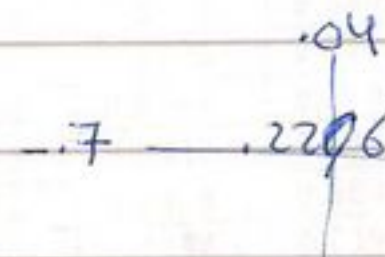 .04
-.7 — .2206